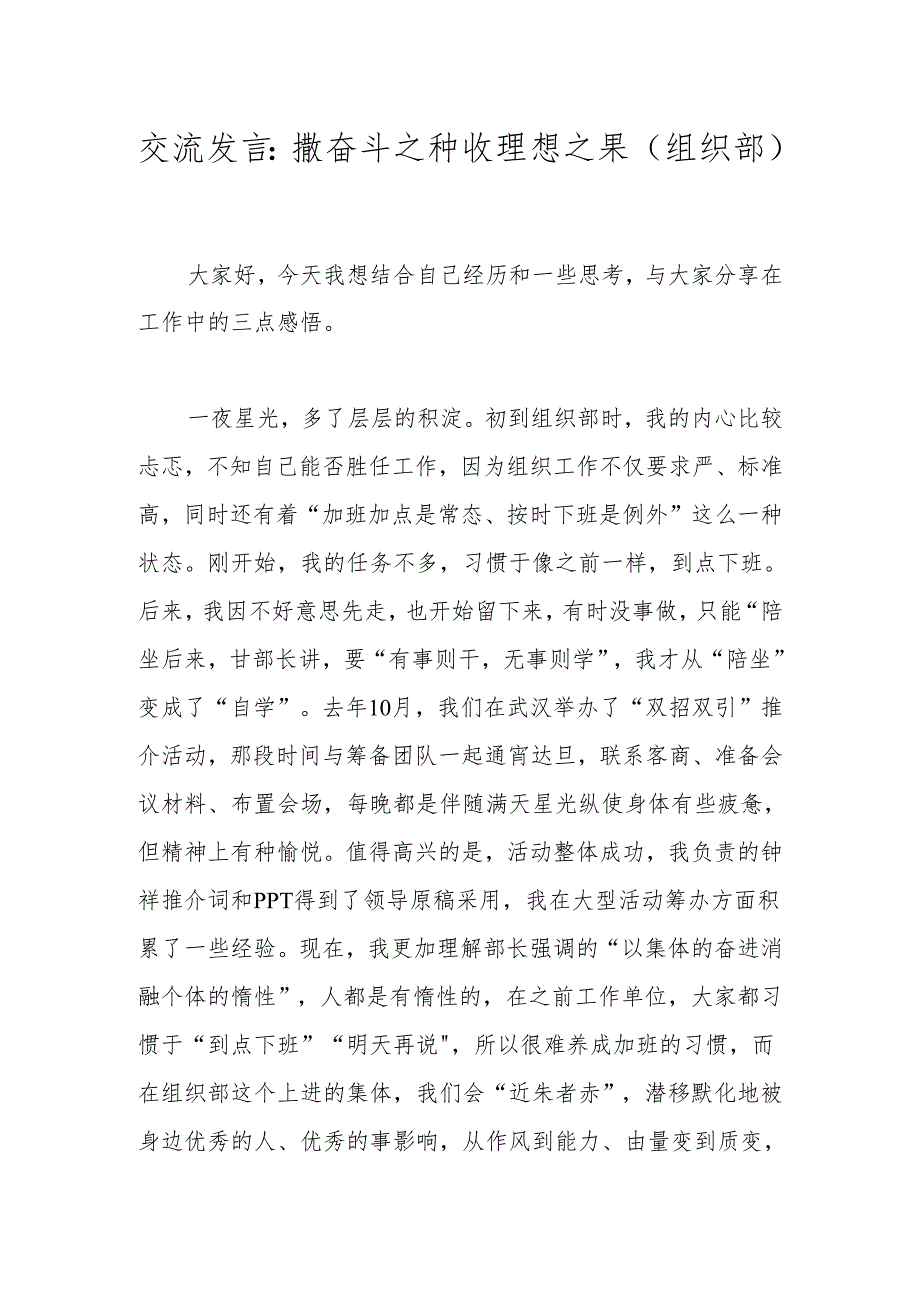 交流发言：撒奋斗之种收理想之果（组织部）
大家好，今天我想结合自己经历和一些思考，与大家分享在
工作中的三点感悟。
一夜星光，多了层层的积淀。初到组织部时，我的内心比较
忐忑，不知自己能否胜任工作，因为组织工作不仅要求严、标准
高，同时还有着“加班加点是常态、按时下班是例外”这么一种
状态。刚开始，我的任务不多，习惯于像之前一样，到点下班。
后来，我因不好意思先走，也开始留下来，有时没事做，只能“陪
坐后来，甘部长讲，要“有事则干，无事则学”，我才从“陪坐”
变成了“自学”。去年10月，我们在武汉举办了“双招双引”推
介活动，那段时间与筹备团队一起通宵达旦，联系客商、准备会
议材料、布置会场，每晚都是伴随满天星光纵使身体有些疲惫，
但精神上有种愉悦。值得高兴的是，活动整体成功，我负责的钟
祥推介词和PPT得到了领导原稿采用，我在大型活动筹办方面积
累了一些经验。现在，我更加理解部长强调的“以集体的奋进消
融个体的惰性”，人都是有惰性的，在之前工作单位，大家都习
惯于“到点下班”“明天再说"，所以很难养成加班的习惯，而
在组织部这个上进的集体，我们会“近朱者赤”，潜移默化地被
身边优秀的人、优秀的事影响，从作风到能力、由量变到质变，